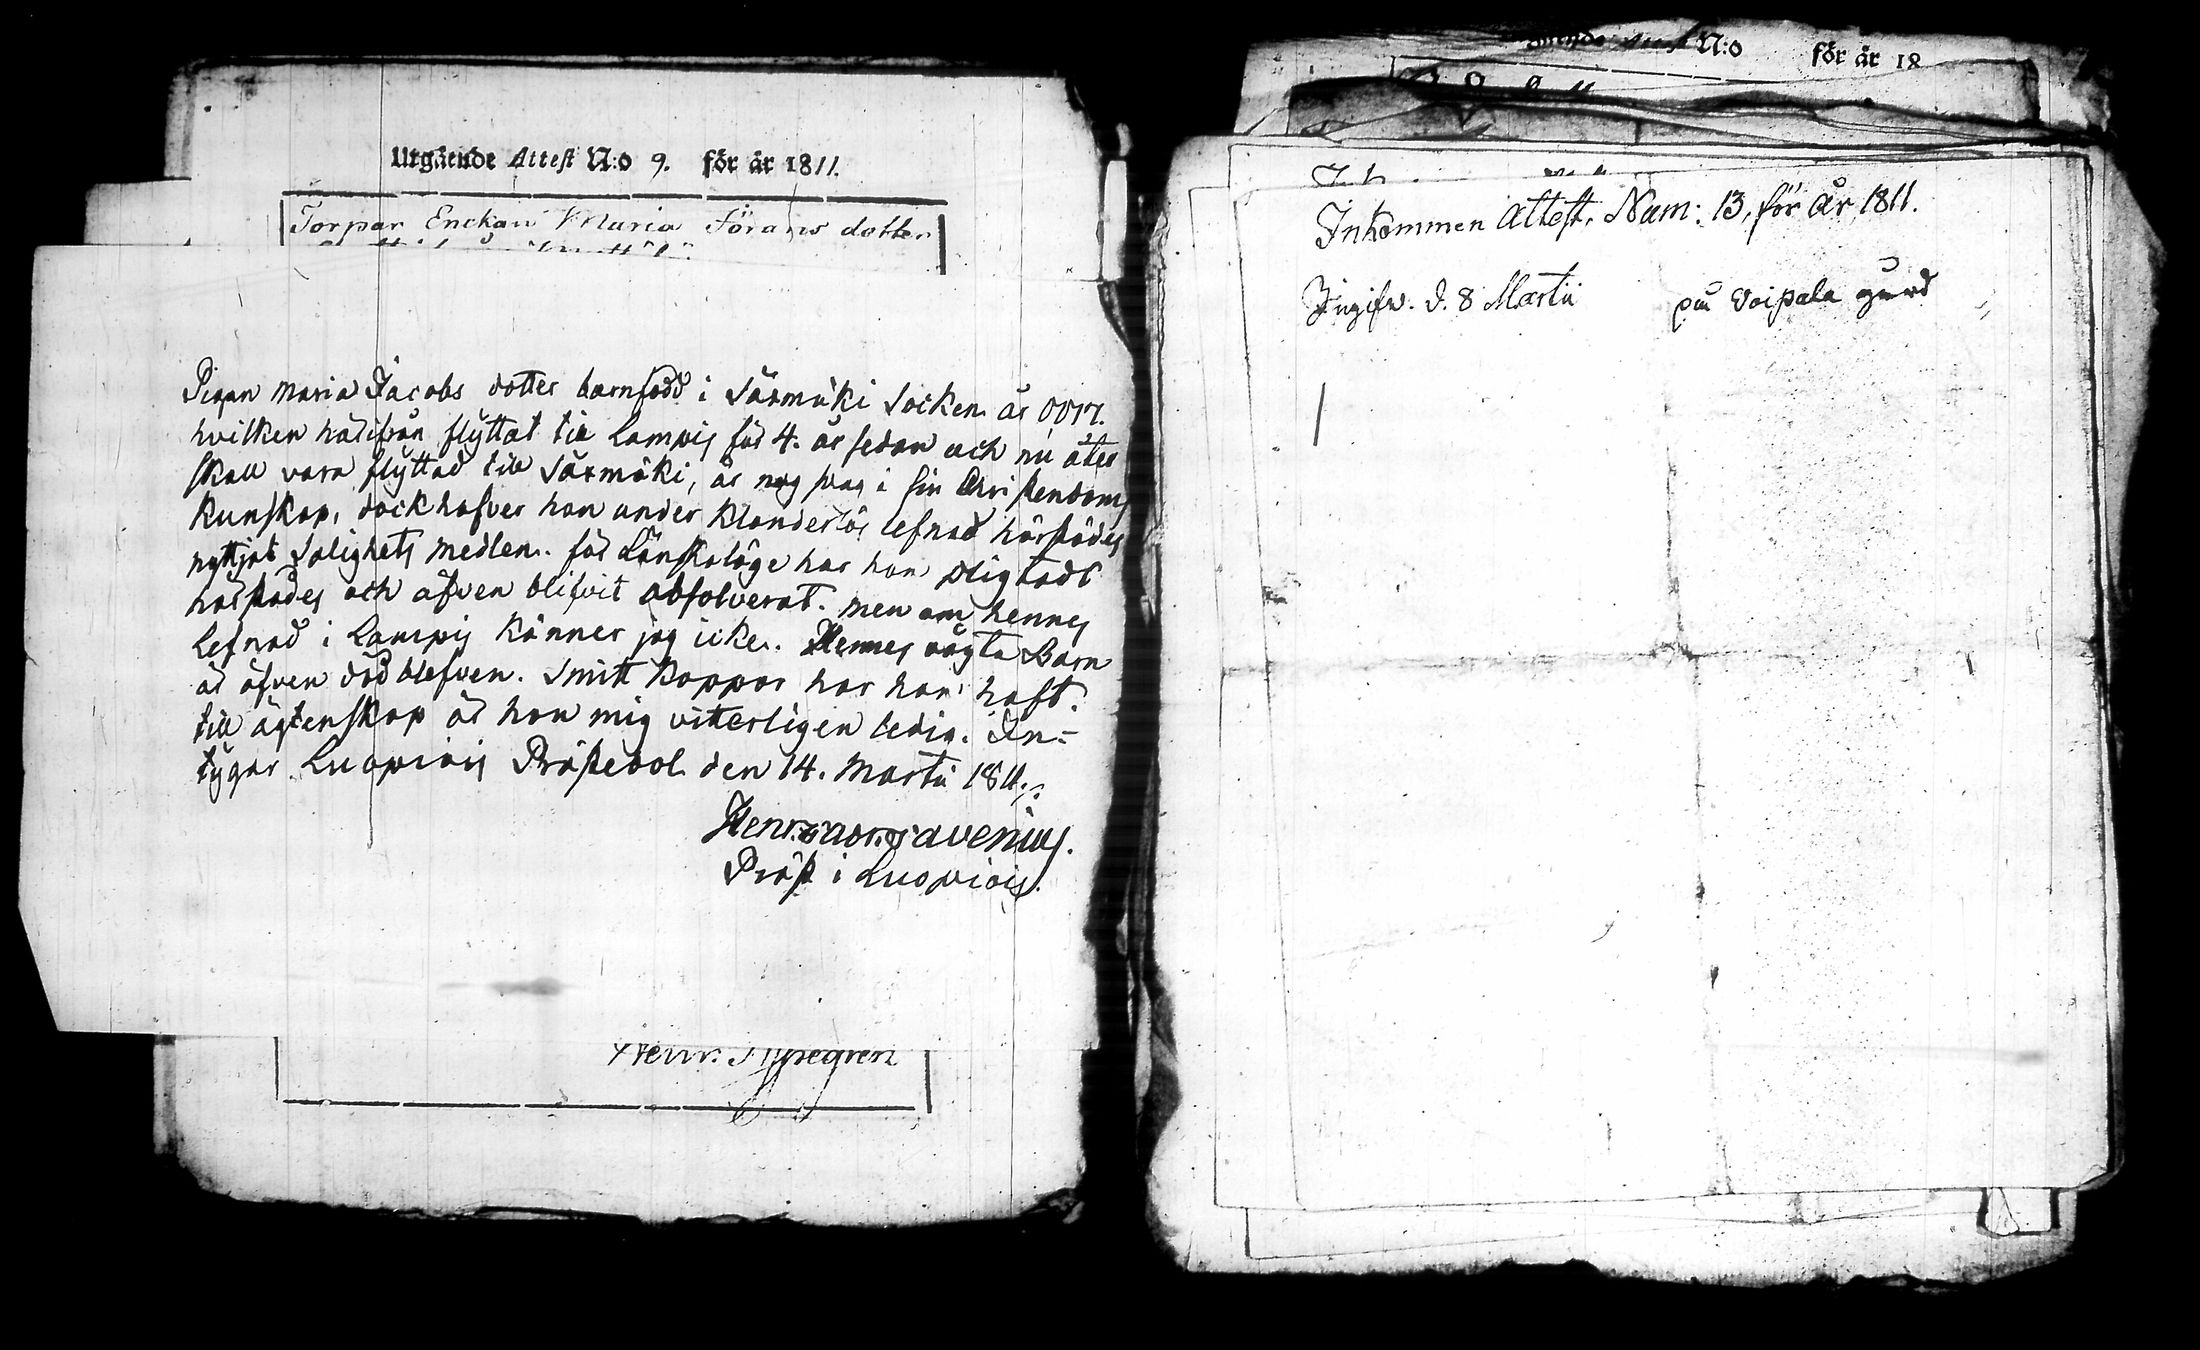 Utgående Attest N:o 9. för år 1811.
Torpar Enckan Maria Görans dotter
Pigan Maria Jacobs dotter barnfödd i Säxmäki Socken år
hvilken härifrån flyttat till Lampis för 4. år sedan och nu åter
skall vara flyttad till Säxmäki, är nog svag i sin Christendoms
kunskap, dock hafver hon under klanderlös lefnad härstädes
nyttjat Salighets medlen. för Lönskaläge har hon pligtadt
härstädes och äfven blifvit absolverat. men om hennes
Lefnad i Lampis känner jag icke. Hennes oägta Barn
är äfven död blefven. Smitt koppor har hon haft.
till ägtenskap är hon mig vitterligen ledig. In-
tygar Luopiois Prästebol den 14. Martii 1811.
Henr: Avenius.
Präst i Luopiois.
Henr:
N:o för år 18
Inkommen Attest. Num: 13, för år 1811.
Ingifv. d. 8 Martii på Voipala gård